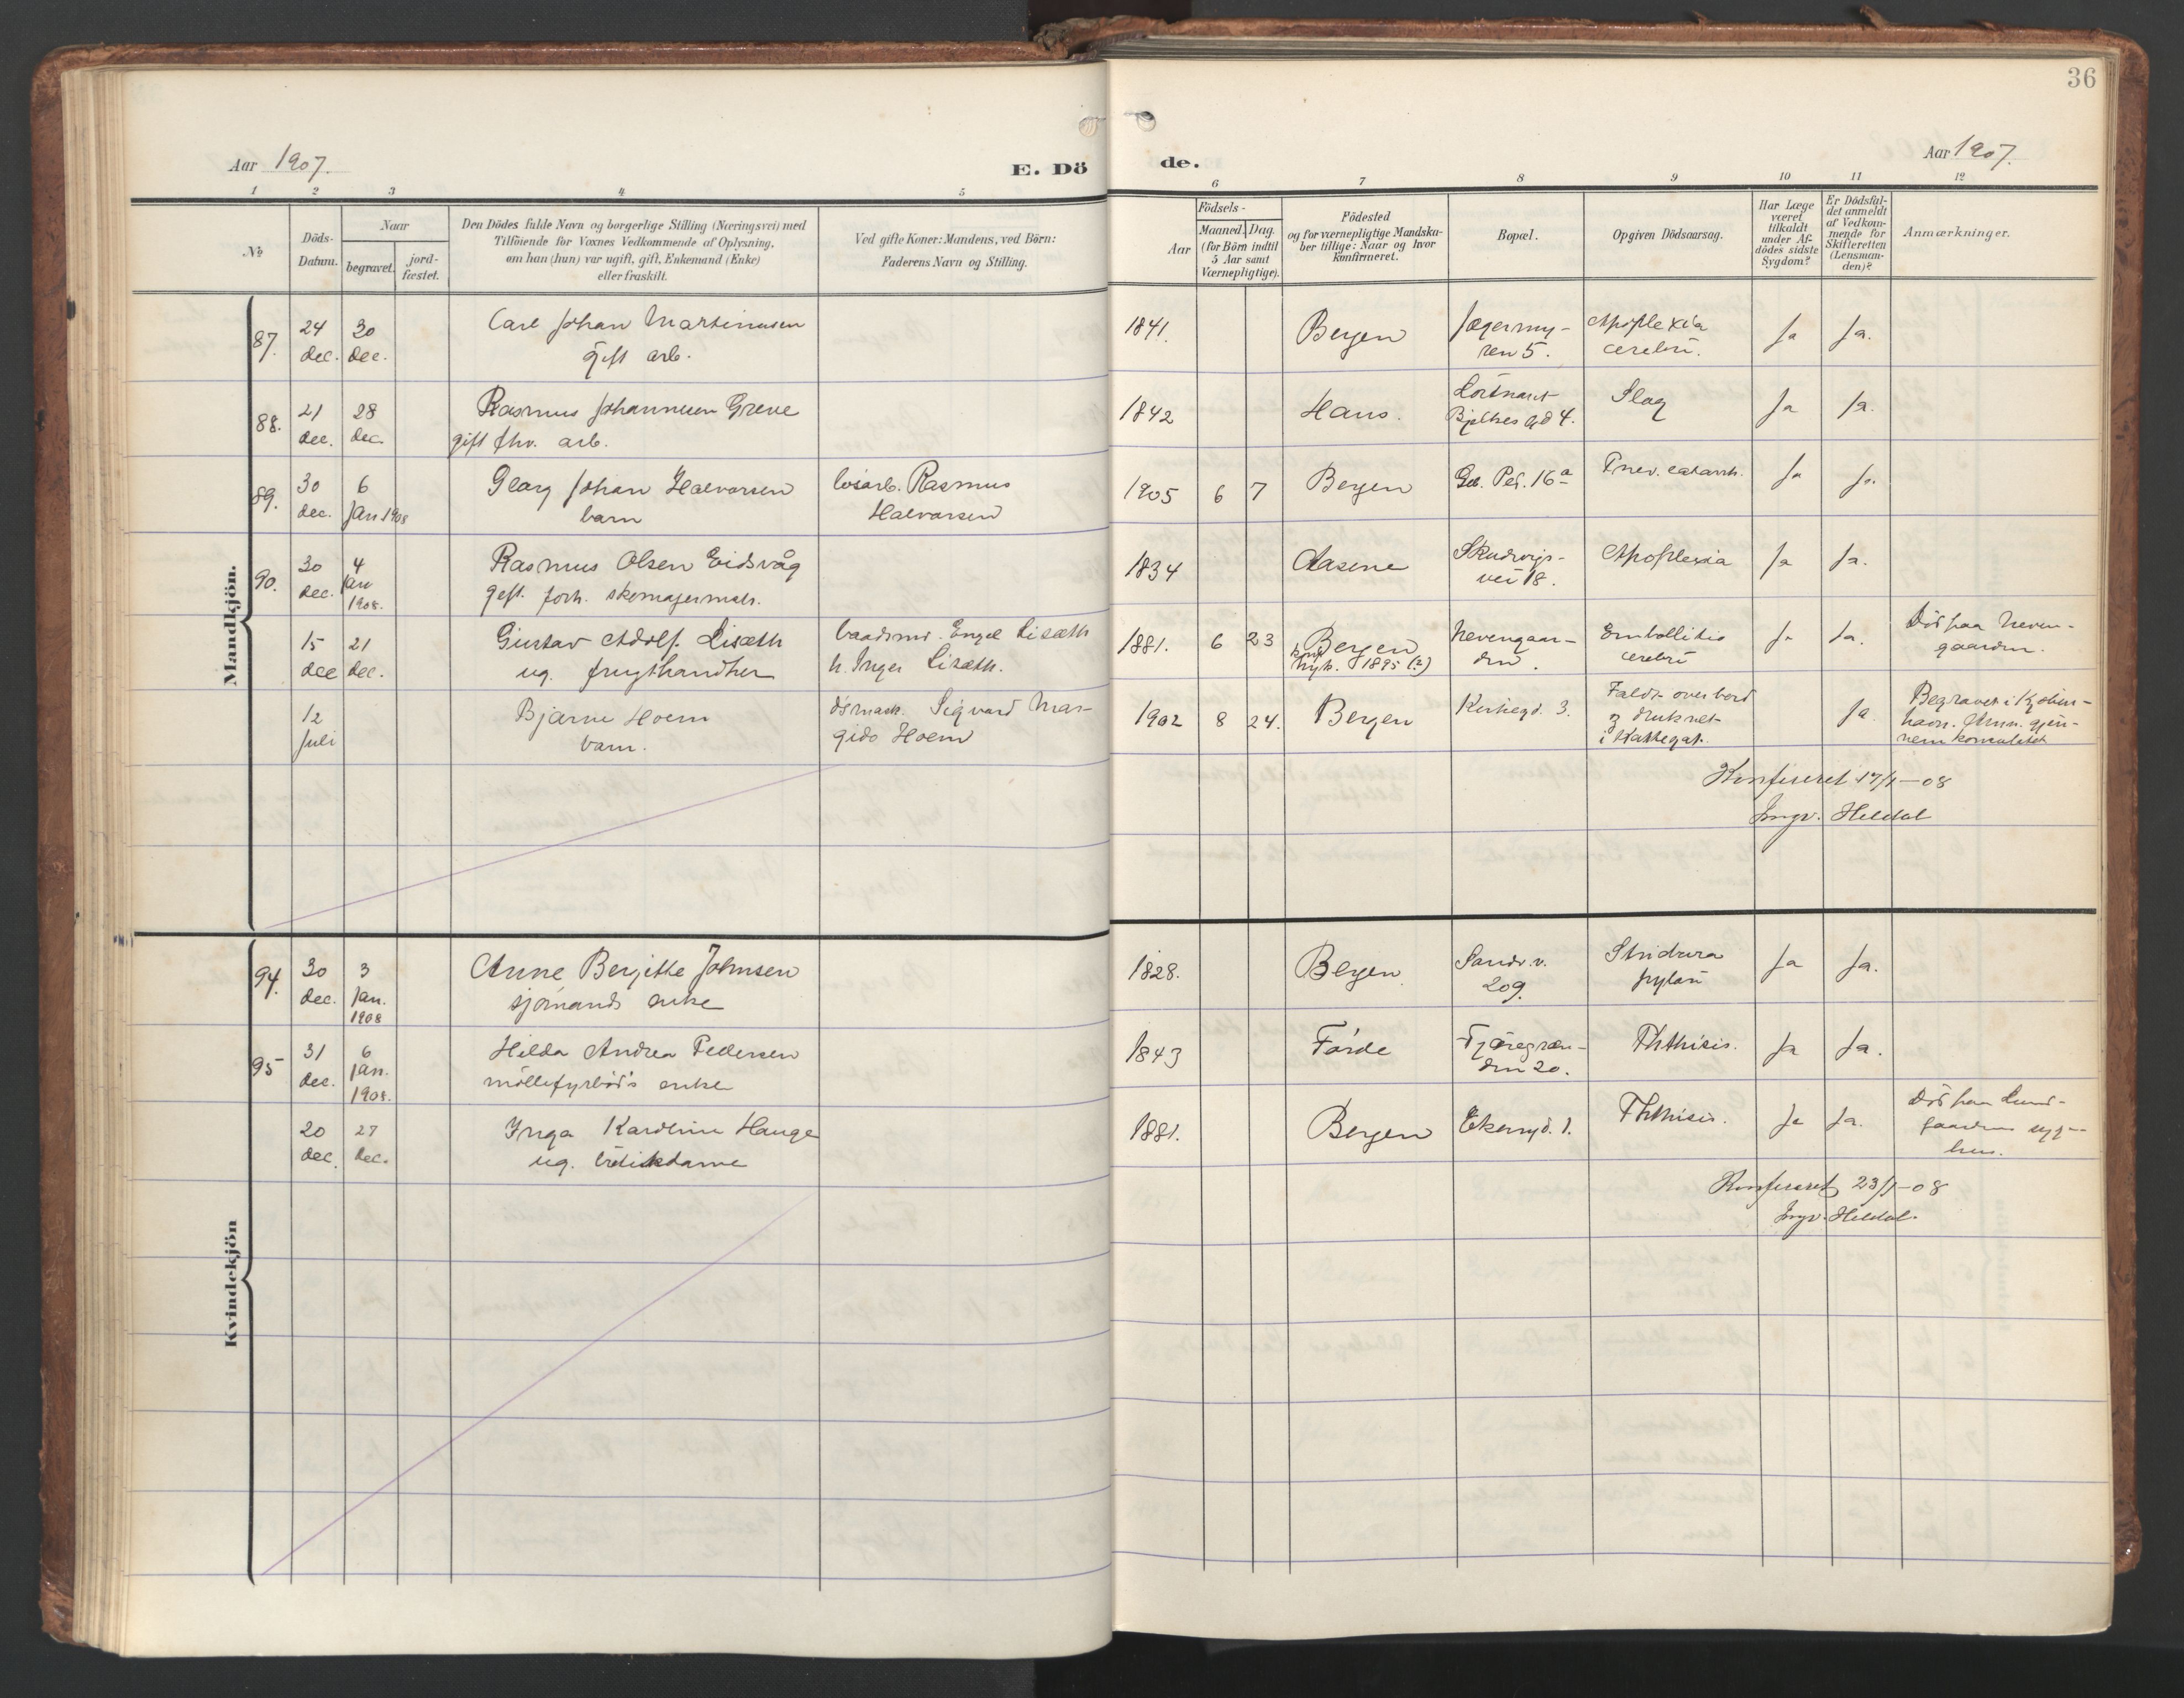 36
Aar 1907.
E. Dö
de.
Aar 1907.
1 2 3 4 5
6 7 8 9 10 11 12
№
Döds-
Datum.
Naar
begravet.
jord-
fæstet.
Den Dödes fulde Navn og borgerlige Stilling (Næringsvei) med
Tilföiende for Voxnes Vedkommende af Oplysning,
om han (hun) var ugift, gift, Enkemand (Enke)
eller fraskilt.
Ved gifte Koner: Mandens, ved Börn:
Faderens Navn og Stilling.
Födsels-
Aar
Maaned. Dag.
(for Börn indtil
5 Aar samt
Værnepligtige).
Födested
og for værnepligtige Mandska-
ber tillige: Naar og hvor
konfirmeret.
Bopæl.
Opgiven Dödsaarsag.
Har Læge
været
tilkaldt
under Af-
dödes sidste
Sygdom?
Er Dödsfal-
det anmeldt
af Vedkom-
mende for
Skifteretten
(Lensman-
den)?
Anmærkninger.
Mandkjön.
87. 24 dec. 30 dec.
Carl Johan Martinusen
gift arb.
1841. Bergen
Jægermy-
ren 5.
Apoplexia
cerebri.
Ja Ja.
88. 21 dec. 28 dec.
Rasmus Johannesen Greve
gift fhv. arb.
1842 Haus.
Bjelkes gd 4.
Slag
Ja Ja.
89. 30 dec. 6 Jan 1908
Georg Johan Halvorsen
barn
løsarb. Rasmus
Halvorsen
1905 6 7 Bergen
Ped. 16a
Pnev. catarrh.
Ja Ja.
90. 30 dec. 4 Jan 1908.
Rasmus Olsen Eidsvåg
gift. forh. skomagermstr.
1834 Aasene
Skudvigs-
vei 18.
Apoplexia
Ja Ja.
15 dec 21 dec.
Gustav Adolf Lisæth
ug. frugthandler
baadsmd. Engel Lisæth
h. Inger Lisæth.
1881. 6 23 Bergen
konf.
Nyk. 1895 (2)
Nevengaar-
den.
cerebri
Ja Ja.
Død paa Neven-
gaarden.
12 Juli
Bjarne Hoem
barn.
Sigvard Mar-
gido Hoem
1902 8 24. Bergen
Kirkegd. 3.
Faldt overbord
og druknet
i Kattegat.
Ja.
Begravet i Kjøben-
havn. Anm. gjen-
nem konsulatet
Konfereret 17/1-08
Ingv. Heldal
Kvindekjön
94. 30 dec. 3 Jan. 1908
Anne Bergitte Johnsen
sjømands enke
1828. Bergen
Sandv. v.
209.
pylori
Ja Ja.
95 31 dec. 6 jan. 1908.
Hilda Andrea Pedersen
møllefyrbød's enke
1843 Førde
Tjæregræn-
den 20.
Phthisis.
Ja Ja.
20 dec. 27 dec.
Inga Karoline Hauge
ug. butikdame
1881. Bergen
Phthisis.
Ja Ja.
Død paa Lund-
gaardens syge-
hus.
Konfereret 23/1-08
Ingv. Heldal.